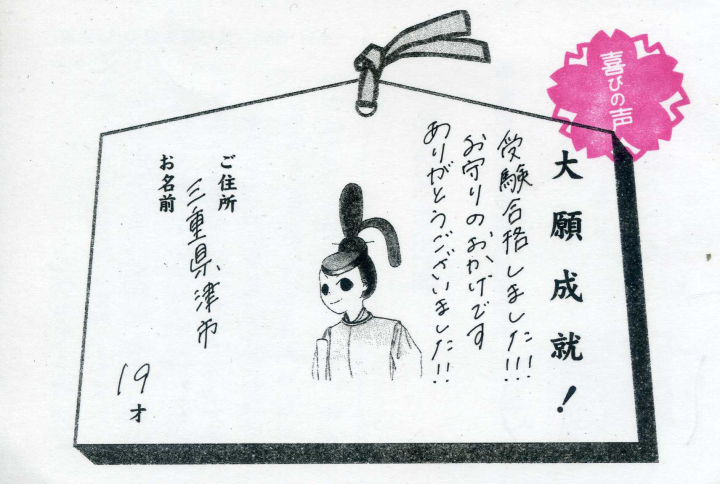 喜びの声
大願成就!
受験合格しました!!!
お守りのおかげです
ありがとうございました!!
ご住所
三重県津市
お名前
19才